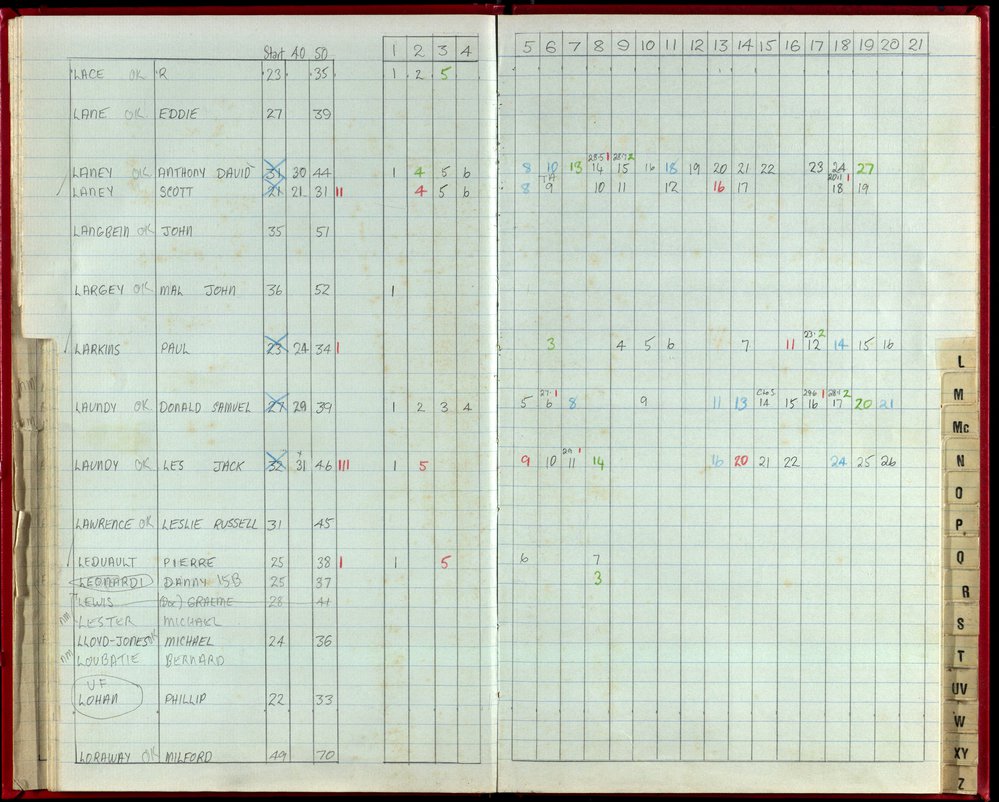 Start 40 50 1 2 3 4 5 6 7 8 9 10 11 12 13 14 15 16 17 18 19 20 21
LACE OK R 23 35 1 2 5
LANE OK EDDIE 27 39
28·5 1 28·7 2
LANEY OK ANTHONY DAVID 31 30 44 1 4 5 6 8 10 13 14 15 16 18 19 20 21 22 23 24 27
TA 20·11 1
LANEY SCOTT 21 21 31 11 4 5 6 8 9 10 11 12 16 17 18 19
LANGBEIN OK JOHN 35 51
LARGEY OK MAL JOHN 36 52 1
23· 2
LARKINS PAUL 23 24 34 1 3 4 5 6 7 11 12 14 15 16
L
27· 1 296 1 28·9 2
M
LAUNDY OK DONALD SAMUEL 27 29 39 1 2 3 4 5 6 8 9 11 13 14 15 16 17 20 21
Mc
29 1
LAUNDY OK LES JACK 32 31 46 111 1 5 9 10 11 14 16 20 21 22 24 25 26
N
O
LAWRENCE OK LESLIE RUSSELL 31 45
P
LEDUAULT PIERRE 25 38 1 1 5 6 7
Q
LEONARDI DANNY 15B 25 37 3
R
LEWIS GRAEME 28 41
nm LESTER MICHAEL
S
LLOYD-JONES OK MICHAEL 24 36
nm LOUBATIE BERNARD
T
UF
UV
LOHAN PHILLIP 22 33
W
LORAWAY OK MILFORD 49 70
XY
Z